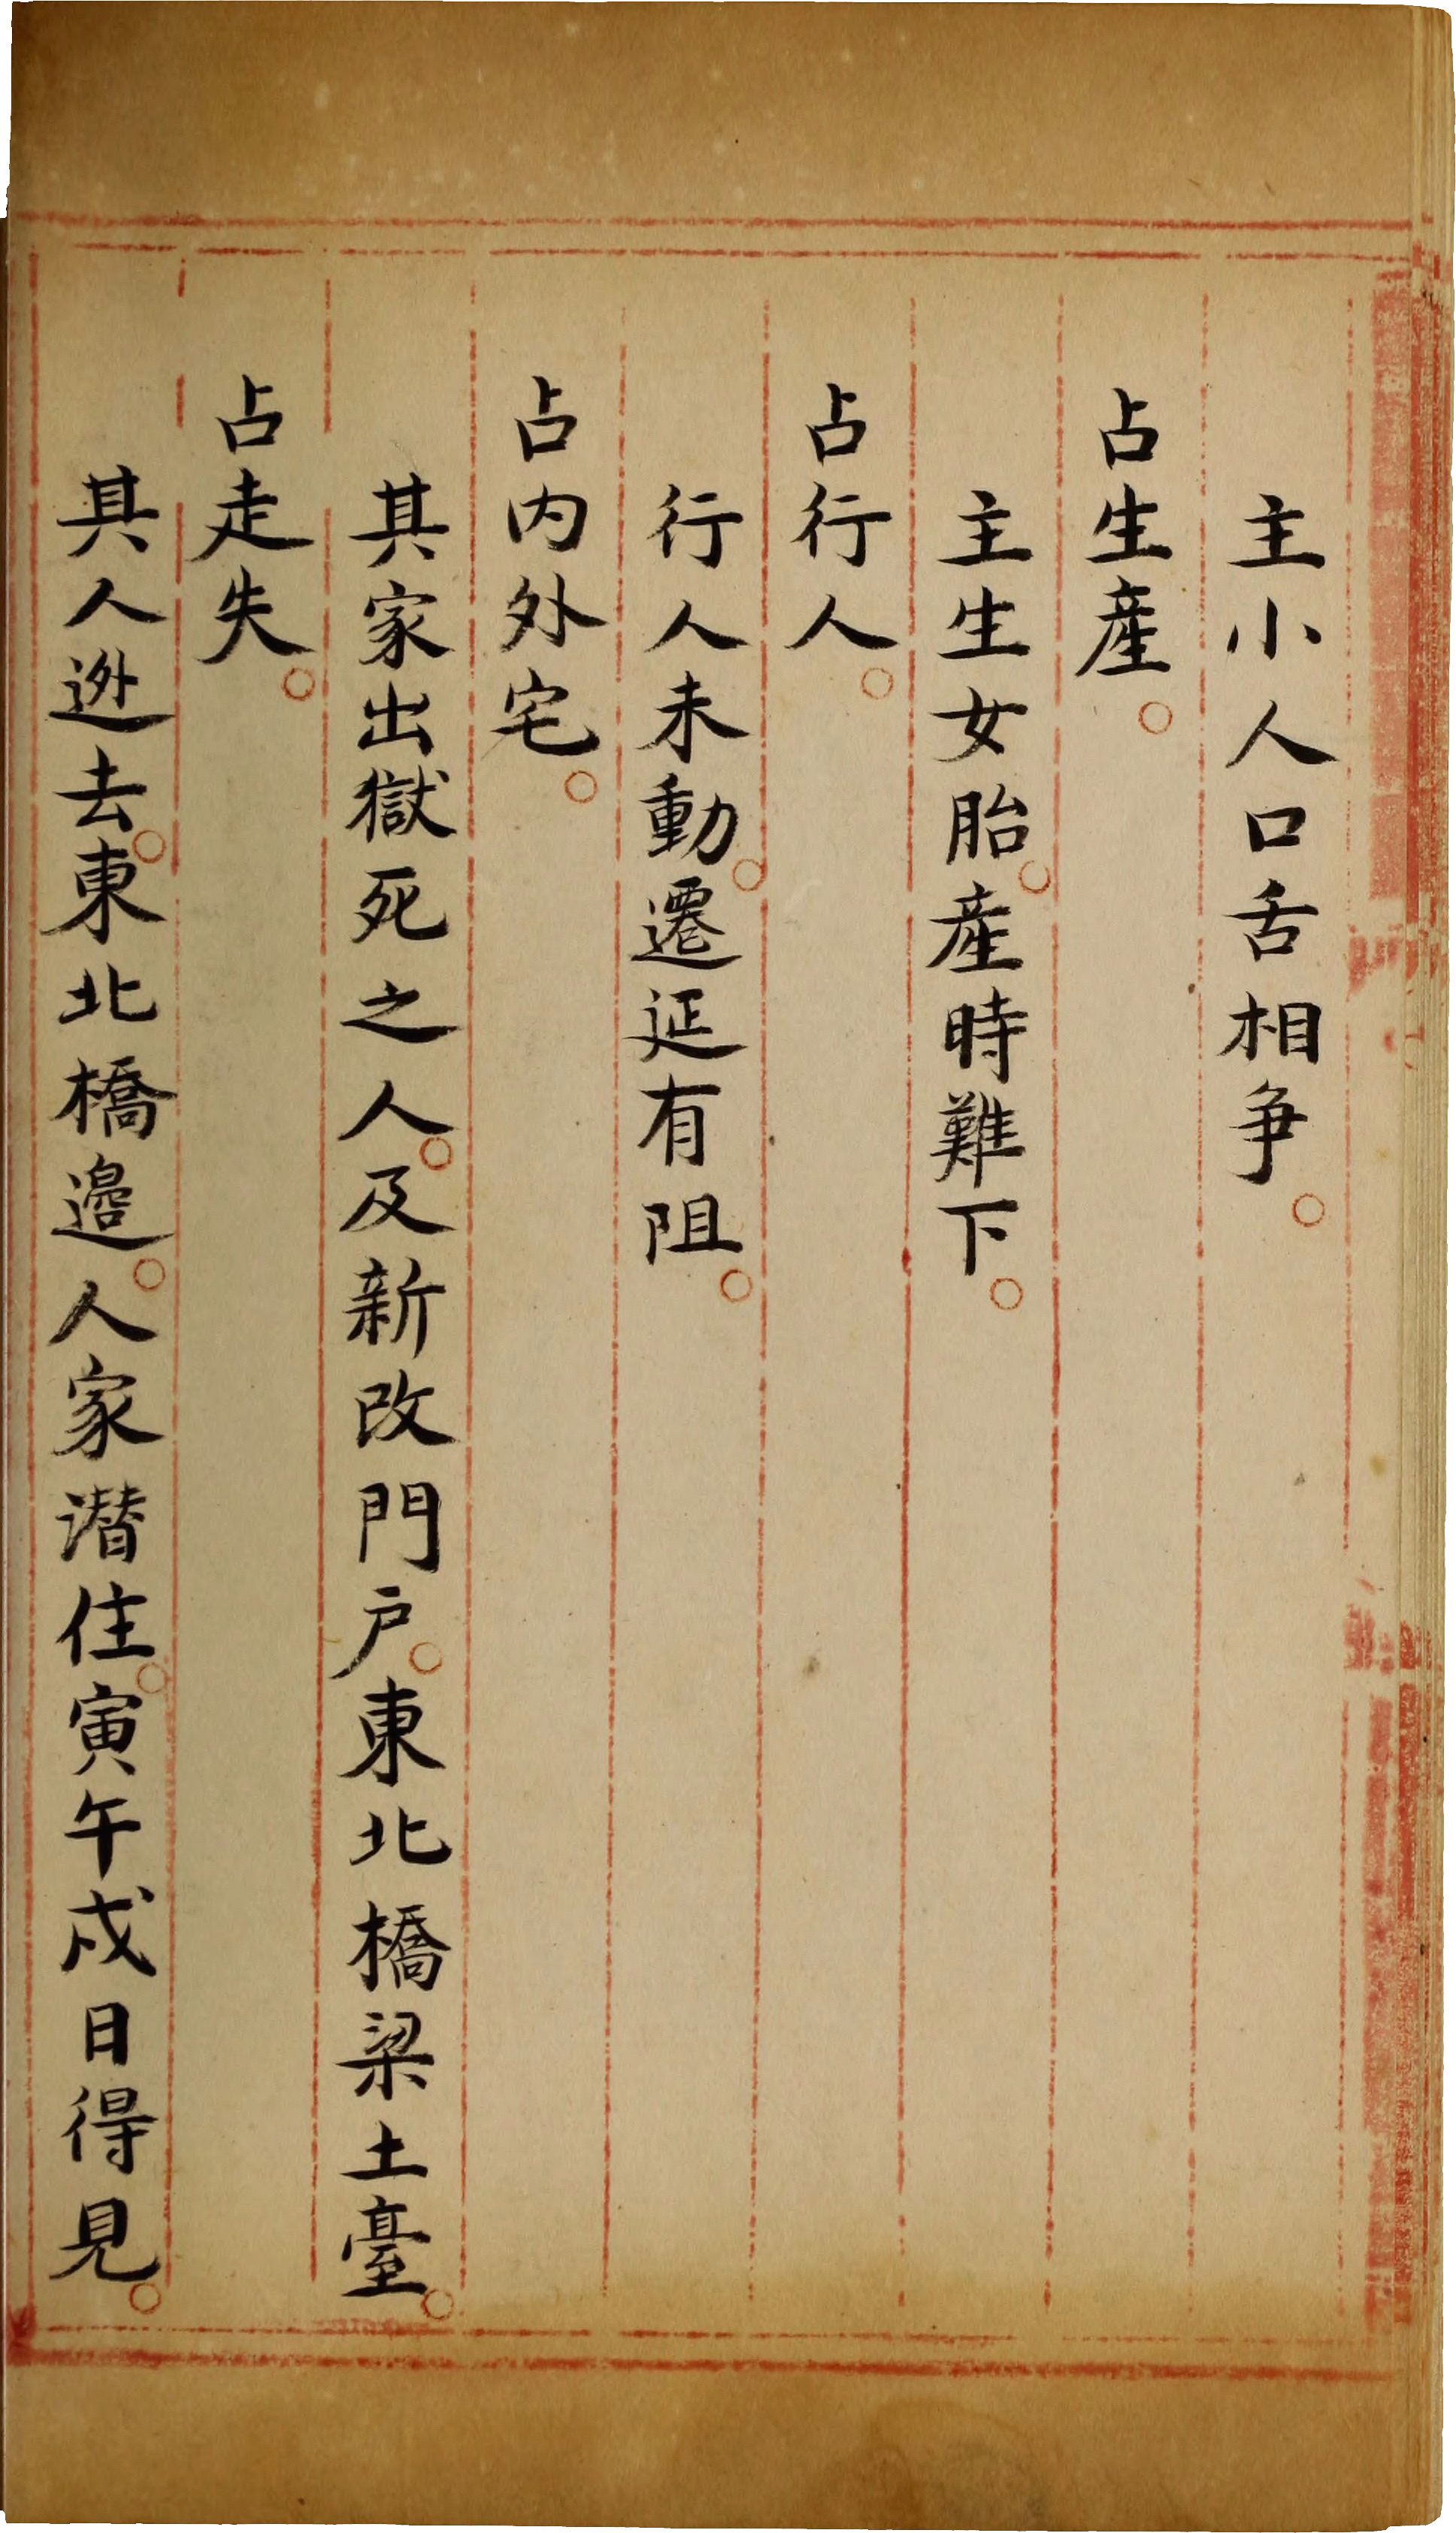 主小人口舌相争。
占生產。
主生女胎。產時難下。
占行人。
行人未動。遷延有阻。
占内外宅。
其家出獄死之人。及新改門户。東北橋梁土臺。
占走失。
其人迯去。東北橋邉。人家潜住。寅午戍日得見。